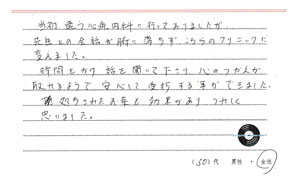 当初、違う心療内科に行っておりましたが
先生との会話が腑に落ちず こちらのクリニックに
変えました。
時間をかけ 話を聞いて下さり 心のつかえが
取れるようで 安心して受診する事ができました。
処方されたお薬も効果があり うれしく
思いました。
(50)代 男性 ・ 女性